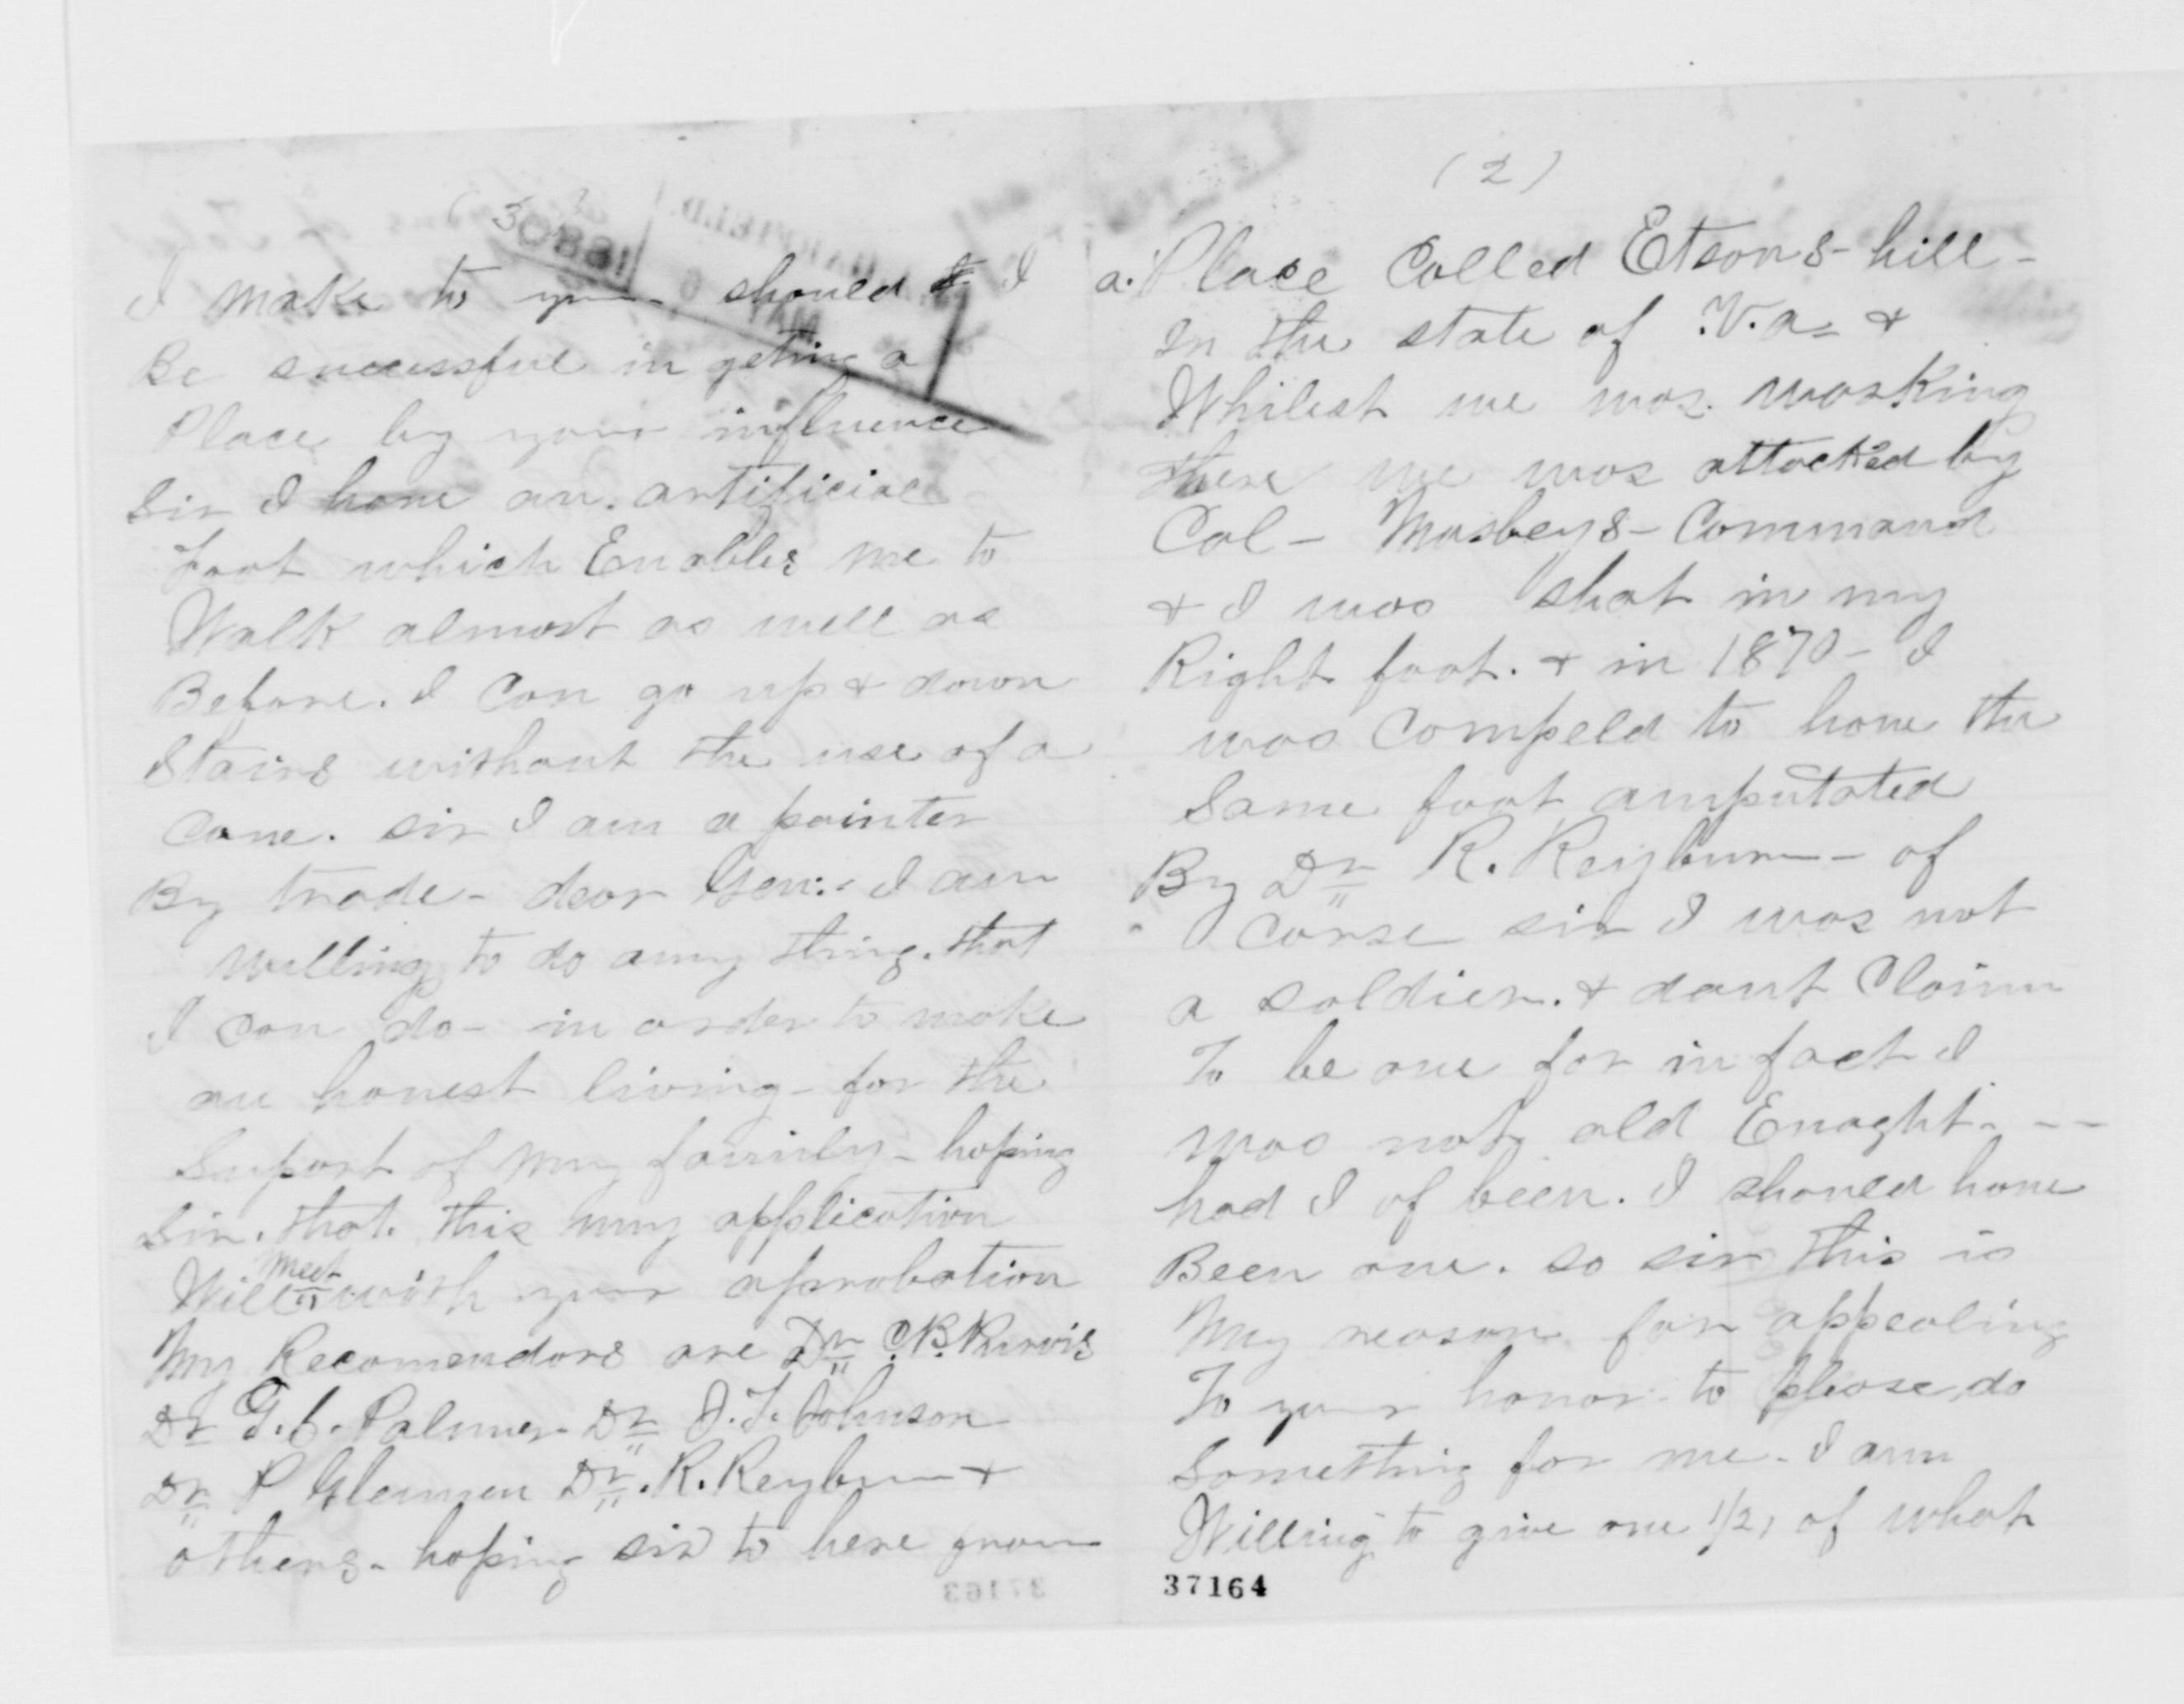 (2)
a. Place Called Etsons-hill-
In the state of V.a. &
Whilest we was working
there we was attacked by
Col- Mosbeys- Command
& I was shot in my
Right foot. & in 1870- I
was Compeld to have the
Same foot amputated
By Dr R. Reyburn - of
Corse sir I was not
a soldier. & dont Claim
To be one for in fact I
was not old Enoght. --
had I of been. I should have
Been one. so sir this is
My reason for appealing
To your honor to please do
Something for me. I am
Willing to give one 1/2, of what
37164
(3)
I make to you should I
Be successful in geting a
Place by your influence
Sir I have an. artificial
foot which Enables me to
Walk almost as well as
Before. I Can go up & down
Stairs without the use of a
Cane. sir I am a painter
By trade- dear Gen:- I am
willing to do anny thing. that
I Can do- in order to make
an honest living- for the
Suport of my family- hoping
Sir. that. this my application
Will meet with your aprobation
My Recomendors are Dr C.B. Purvis
Dr G.S. Palmer- Dr J.T. Johnson
Dr P Glennen Dr. R. Reyburn &
others- hoping sir to here from